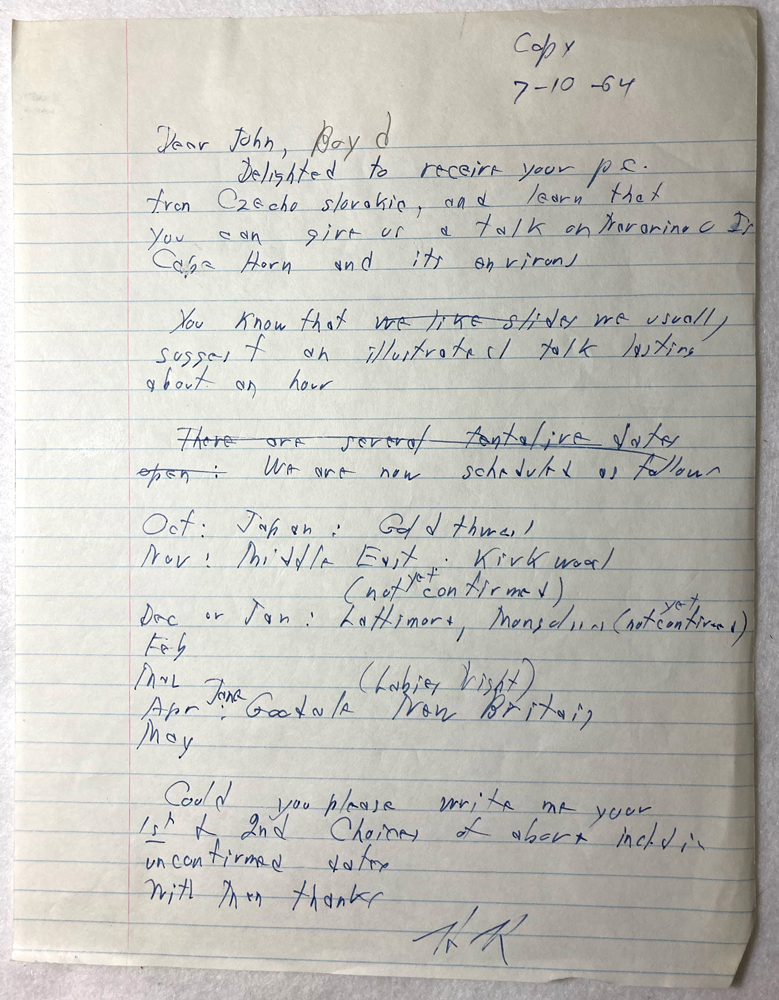 Copy
7-10-64
Dear John, Boyd
Delighted to receive your p.c.
from Czecho slovakia, and learn that
you can give us a talk on Navarino Is
Cape Horn and its environs
You know that we like slides we usually
suggest an illustrated talk lasting
about an hour
There are several tentative dates
open: We are now scheduled as follows
Oct: Japan: Goldthwait
Nov: Middle East: Kirkwood
(not yet confirmed)
Dec or Jan: Lattimore, Mongolia (not yet confirmed)
Feb
Mar (Ladies Night)
Apr: Jane Goodale New Britain
May
Could you please write me your
1st & 2nd Choices of above includin
unconfirmed dates
With Many thanks
HR